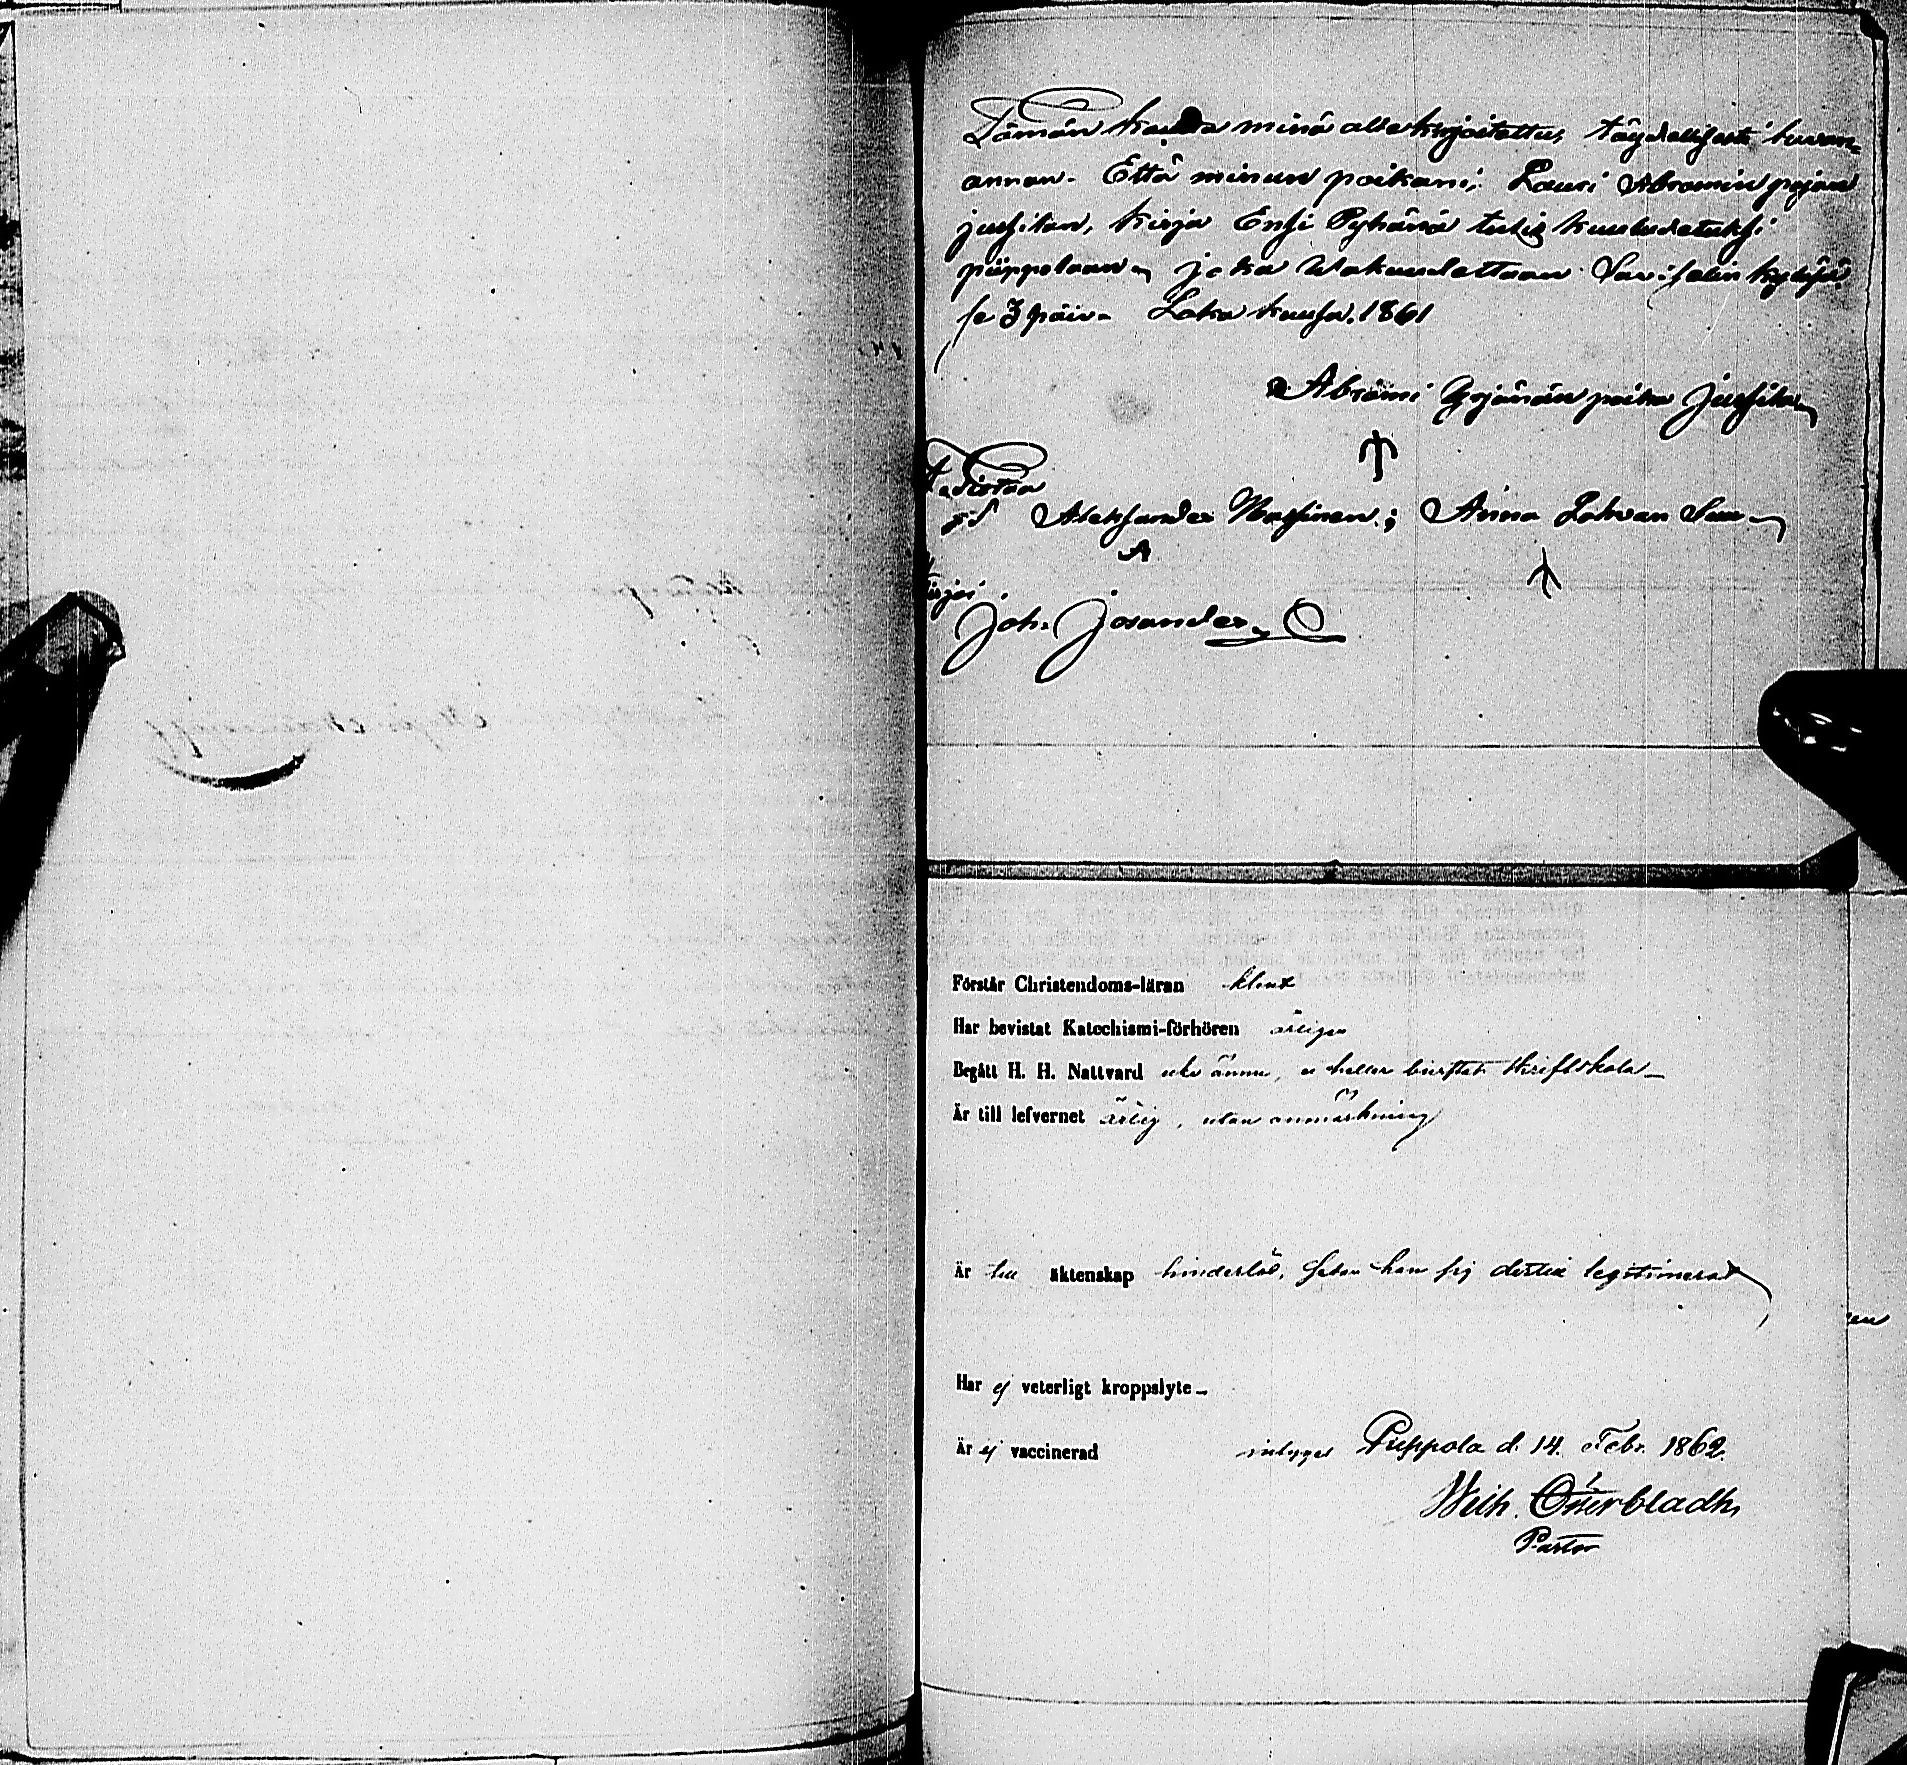 Tämän kautta minä allekirjoitettu, täydellisesti luvan
annan. Että minun poikani: Lauri Abramin pojan
jussilan, kirja Ensi Pyhänä tulis kuuludetuksi
piippolaan, joka Wakuudettaan Savisalin kyläsä
se 3 päiv. Loka kuusa. 1861
Abrami Yrjänän poika Jussila
Todistaa
Aleksander Massinen; Anna Lahvan Suu
A
Kirjoi
Joh. Josander
Förstår Christendoms-läran klent
Har bevistat Katechismi-förhören årligen
Begått H. H. Nattvard icke ännu, ei heller bivistat skriftskola
Är till lefvernet ärlig, utan anmärkning
Är till äktenskap hinderlös, sedan han sig dertill legitimerat
Har ej veterligt kroppslyte
Är ej vaccinerad intygas Pippola d. 14. Febr. 1862.
Wilh. Österbladh
Pastor